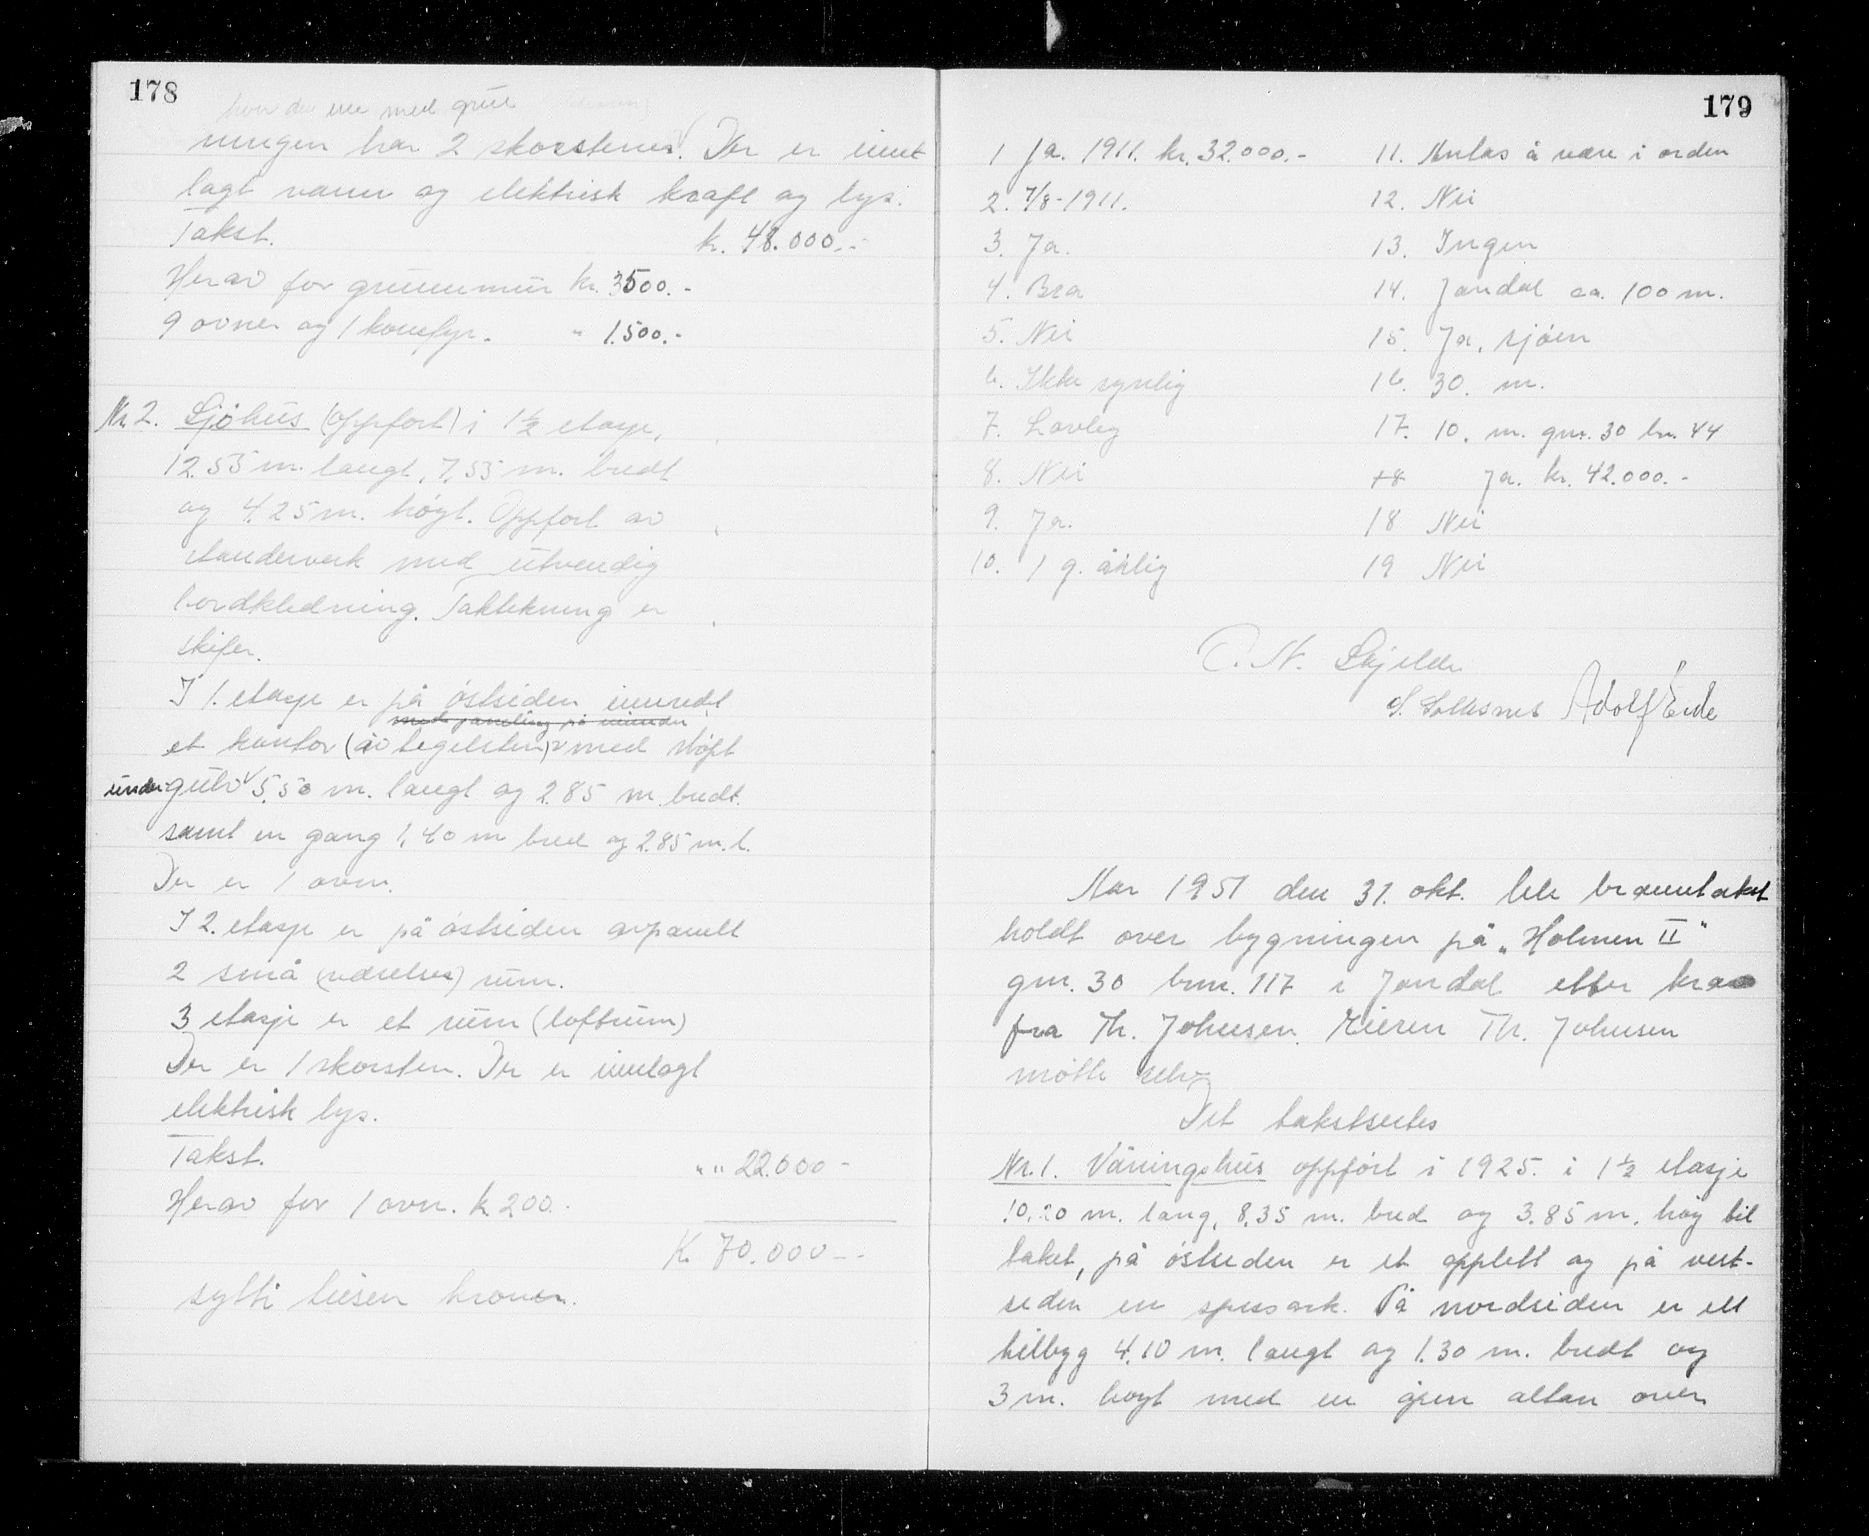 178
hvor den ene med grue
ningen har 2 skorstener. Der er innt
lagt vann og elektrisk kraft og lys.
Takst. kr. 48.000.-
Herav for grunnmur kr. 3500.-
9 ovner og 1 komfyr. " 1.500.-
Nr. 2. Sjöhus (oppfört) i 1½ etasje,
12.55 m. langt, 7,55 m. bredt
og 4.25 m. höyt. Oppfört av
standerverk med utvendig
bordkledning. Taktekning er
skifer.
I 1. etasje er på östsiden innredt
med paneling på innsiden
et kontor (av tegelsten) med stöpt
undergulv 5.50 m. langt og 2.85 m. bredt.
samt en gang 1,40 m bred og 2.85 m. l.
Der er 1 ovn.
I 2. etasje er på östsiden avpanelt
2 små (værelser) rum.
3 etasje er et rum (loftrum)
Der er 1 skorsten. Der er innlagt
elektrisk lys.
Takst. " " 22.000-
Herav for 1 ovn. k. 200.-
K. 70.000.-
sytti tusen kroner.
179
1 Ja. 1911. kr. 32.000.-
2. 7/8-1911.
3. Ja.
4. Bra
5. Nei
6. Ikke synlig
7. Lovleg
8. Nei
9. Ja.
10. 1 g. årlig
11. Antas å være i orden
12. Nei
13. Ingen
14. Jondal ca. 100 m.
15. Ja, sjöen
16. 30. m.
17. 10. m. gnr. 30 bn. 44
18 Ja. kr. 42.000.-
18 Nei
19 Nei
O. N. Skjelde
S. Solesnes Adolf Eide
Aar 1951 den 31. okt. ble branntakst
holdt over bygningen på "Holmen II"
gnr. 30 bnr. 117 i Jondal etter krav
fra Th. Johnsen. Eieren Th. Johnsen
mötte selv.
Det takstsertes
Nr. 1. Våningshus oppfört i 1925. i 1½ etasje
10,20 m. lang, 8,35 m. bred og 3.85 m. höy til
taket, på östsiden er et opplett og på vest-
siden en spissark. På nordsiden er ett
tilbygg 4.10 m. langt og 1.30 m. bredt og
3 m. höyt med en åpen altan over